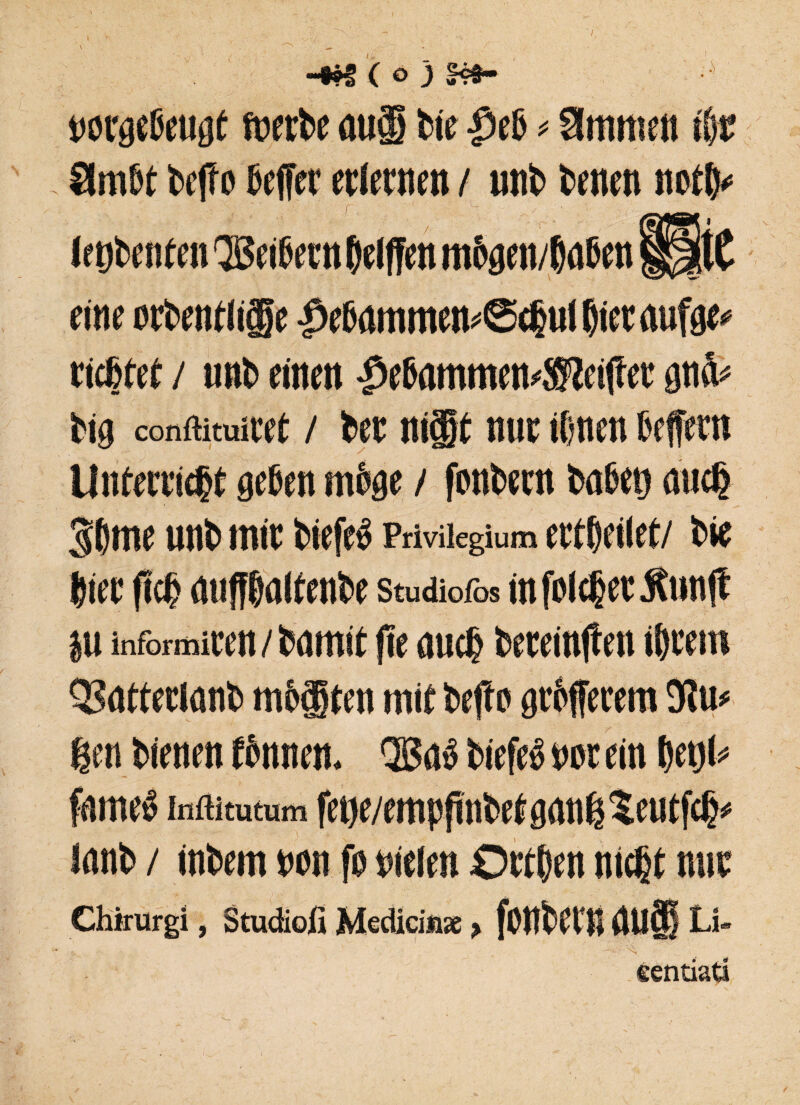 ( o )
vorgebeugt werde auch die Heb-Ammen ihr
Ambt desto besser erlernen / und denen noth-
leydenten Weibern helffen mögen/haben
eine ordentliche Hebammen-Schul hier aufge-
richtet / und einen Hebammen-Meister gnä-
dig constituiret / der nicht nur ihnen bessern
Unterricht geben möge / sondern dabey auch
Ihme und mir dieses Privilegium ertheilet/ die
hier sich auffhaltende Studiosos in solcher Kunst
zu informiren / damit sie auch dereinsten ihrem
Vatterland möchten mit desto grösserem Nu-
tzen dienen können. Was dieses vor ein heyl-
sames Institutum seye/empfindet gantz Teutsch-
land / indem von so vielen Orthen nicht nur
Chirurgi, Studiosi Medicinæ, sondern auch Li-
centiati